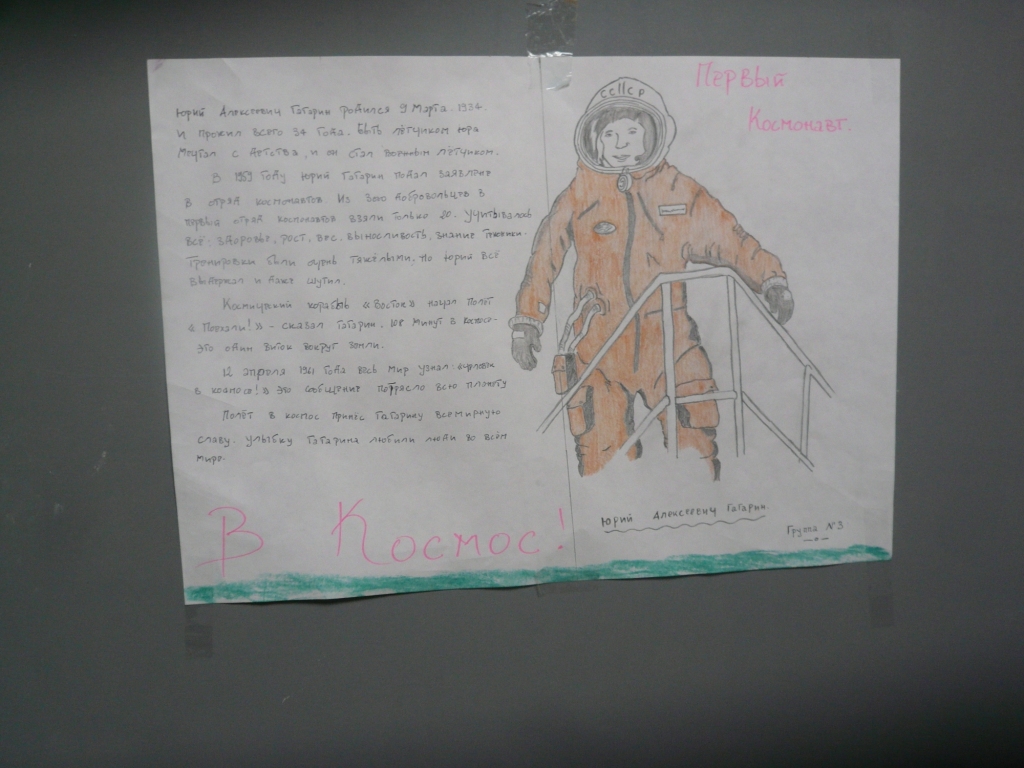 Юрий Алексеевич Гагарин родился 9 Марта. 1934.
И прожил всего 34 года. Быть лётчиком Юра
Мечтал с детства, и он стал военным лётчиком.
В 1959 году Юрий Гагарин подал заявление
в отряд космонавтов Из 3000 добровольцев в
первый отряд космонавтов взяли только 20. Учитывалось
всё: здоровье, рост, вес, выносливость, знание техники.
Тренировки были очень тяжёлыми, но Юрий всё
выдержал и даже шутил.
Космический корабль «Восток» начал полёт
«Поехали!» - сказал Гагарин. 108 минут в космосе-
это один виток вокруг земли.
12 апреля 1961 года весь мир узнал: человек
в космосе! это сообщение потрясло всю планету
Полёт в космос принёс Гагарину всемирную
славу. улыбку Гагарина любили люди во всём
мире.
В Космос!
Первый
Космонавт.
СССР
Юрий Алексеевич Гагарин.
Группа №3